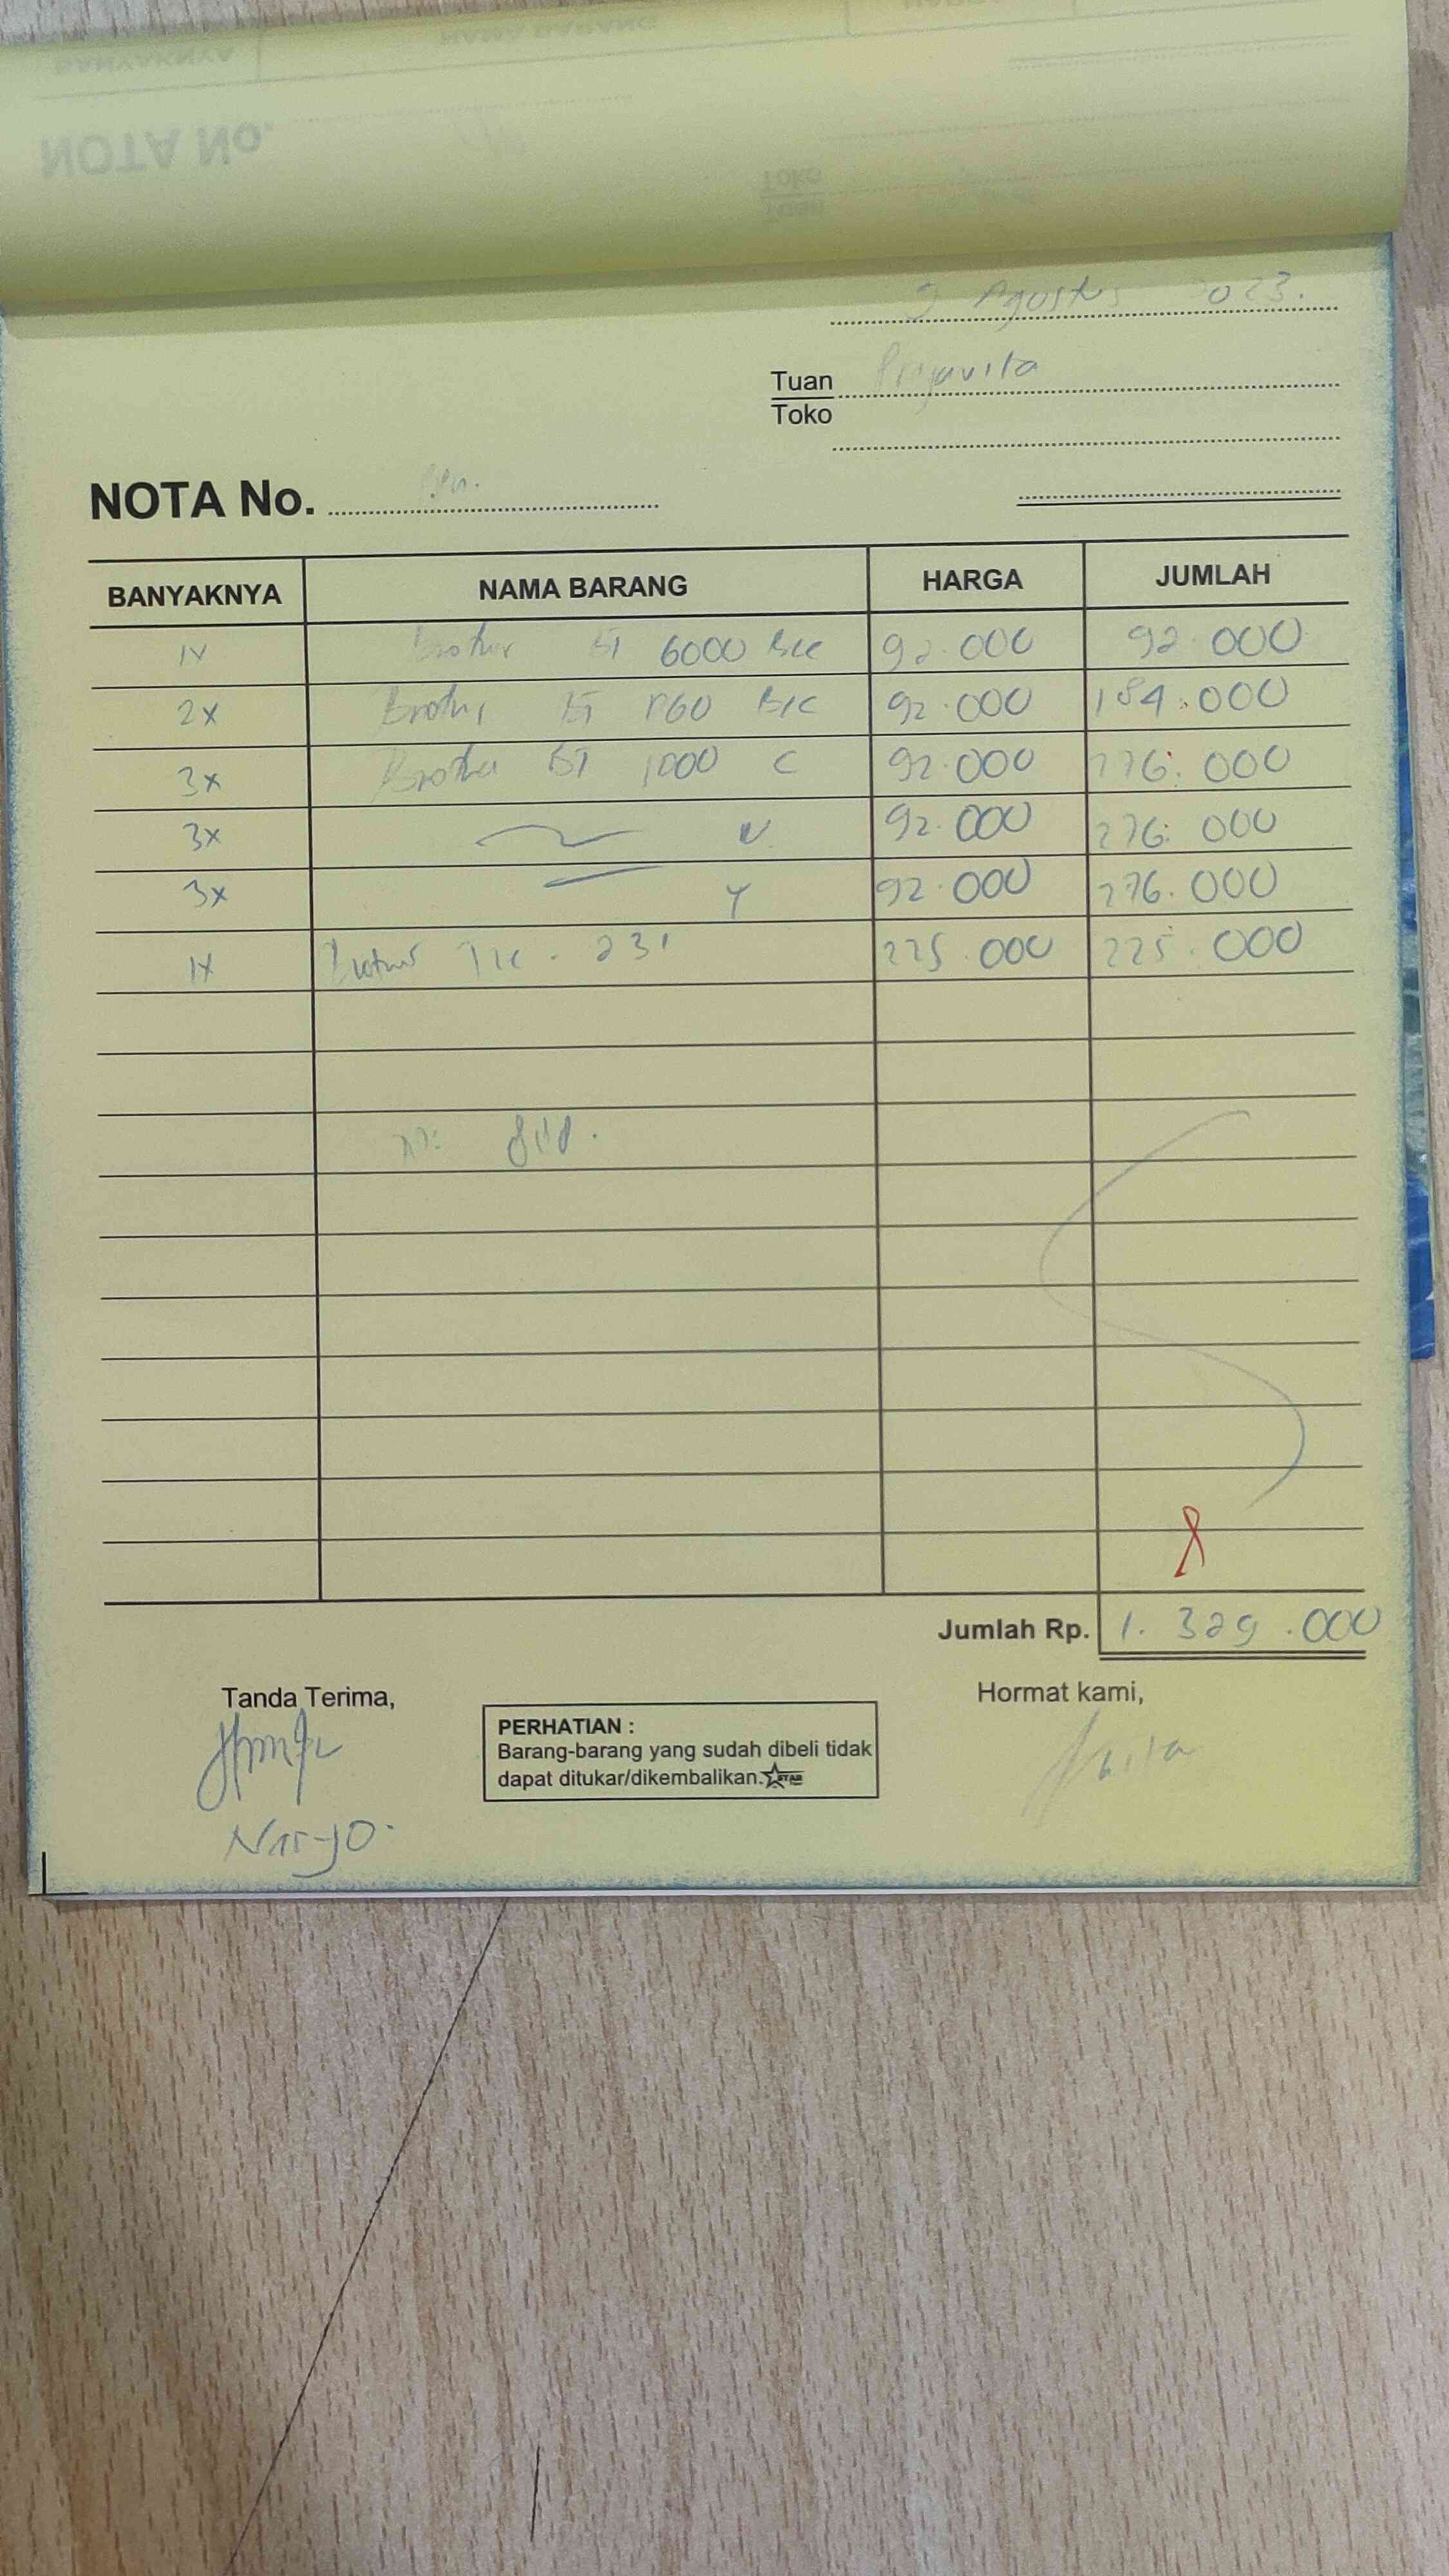 9 Agustus 2023.
Tuan
Toko
NOTA No.
BANYAKNYA NAMA BARANG HARGA JUMLAH
1x Brother BT 6000 BLK 92.000 92.000
2x Brother BT BLK 92.000 184.000
3x Brother BT C 92.000 276.000
3x 92.000 276.000
3x Y 92.000 276.000
1x Brother 231 225.000 225.000
Jumlah Rp. 1.329.000
Tanda Terima,
Hormat kami,
PERHATIAN :
Barang-barang yang sudah dibeli tidak
dapat ditukar/dikembalikan. STAR